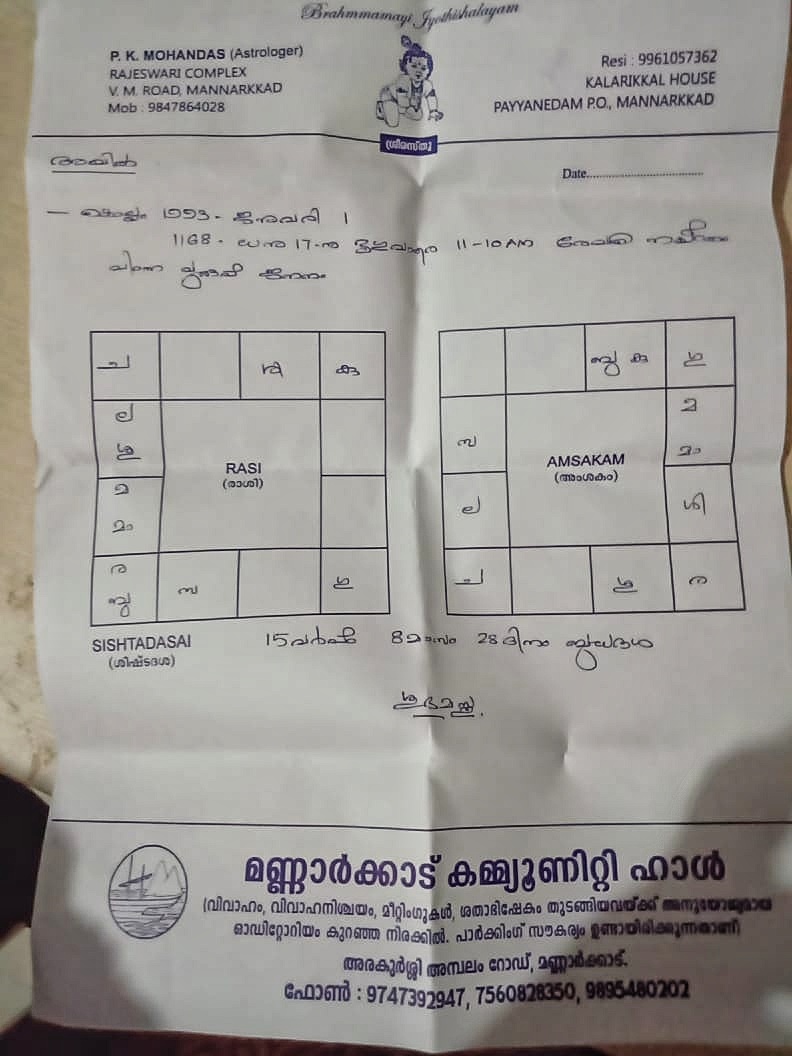 Brahmmamayi Jyothishalayam
P. K. MOHANDAS (Astrologer)
RAJESWARI COMPLEX
V. M. ROAD, MANNARKKAD
Mob : 9847864028
Resi : 9961057362
KALARIKKAL HOUSE
PAYYANEDAM P.O., MANNARKKAD
ശ്രീരസ്തു
Date
— കൊല്ലം 1993 - ജനുവരി 1
1168 - ധനു 17-നു 11-10 AM രേവതി നക്ഷത്രം
ജനനം
ച കു
ല
ശു
മ
മാ
ര
ബു
സ
RASI
(രാശി)
ബു കു
മ
മാ
സ
ല
ശി
ച
AMSAKAM
(അംശകം)
SISHTADASAI 15 വർഷം 8 മാസം 28 ദിനം ബുധദശ
(ശിഷ്ടദശ)
ശുഭമസ്തു.
മണ്ണാർക്കാട് കമ്മ്യൂണിറ്റി ഹാൾ
(വിവാഹം, വിവാഹനിശ്ചയം, മീറ്റിംഗുകൾ, ശതാഭിഷേകം തുടങ്ങിയവയ്ക്ക് അനുയോജ്യമായ
ഓഡിറ്റോറിയം കുറഞ്ഞ നിരക്കിൽ. പാർക്കിംഗ് സൗകര്യം ഉണ്ടായിരിക്കുന്നതാണ്)
അരകുർശ്ശി അമ്പലം റോഡ്, മണ്ണാർക്കാട്.
ഫോൺ : 9747392947, 7560828350, 9895480202